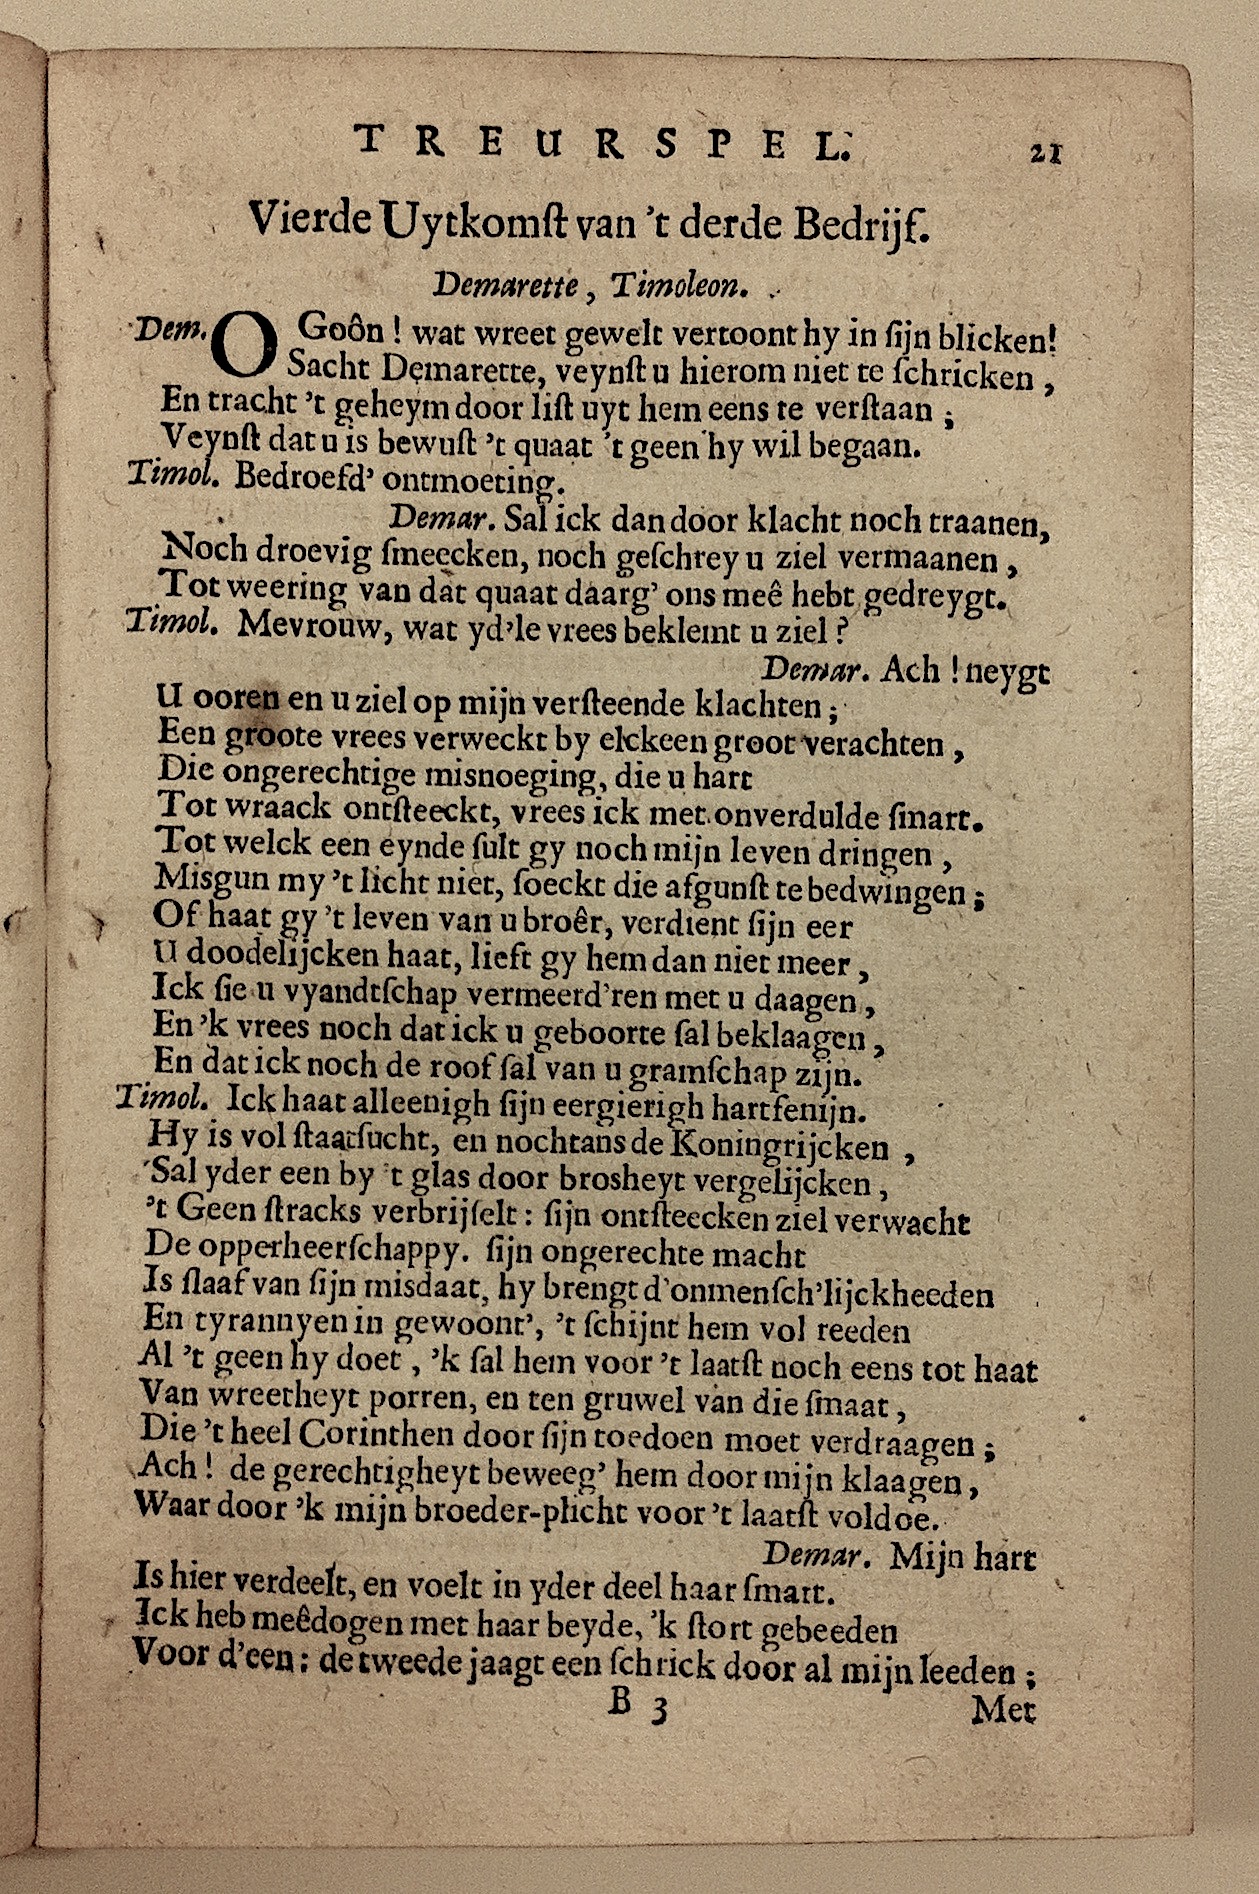 TREURSPEL. 21
Vierde Uytkomſt van 't derde Bedrijf.
Demarette, Timoleon.
Dem. O Goôn! wat wreet gewelt vertoont hy in ſijn blicken!
Sacht Demarette, veynſt u hierom niet te ſchricken,
En tracht 't geheym door liſt uyt hem eens te verſtaan;
Veynſt dat u is bewuſt 't quaat 't geen hy wil begaan.
Timol. Bedroefd' ontmoeting.
Demar. Sal ick dan door klacht noch traanen,
Noch droevig ſmeecken, noch geſchrey u ziel vermaanen,
Tot weering van dat quaat daarg' ons meê hebt gedreygt.
Timol. Mevrouw, wat yd'le vrees beklemt u ziel?
Demar. Ach! neygt
U ooren en u ziel op mijn verſteende klachten;
Een groote vrees verweckt by elckeen groot verachten,
Die ongerechtige misnoeging, die u hart
Tot wraack ontſteeckt, vrees ick met onverdulde ſmart.
Tot welck een eynde ſult gy noch mijn leven dringen,
Misgun my 't licht niet, ſoeckt die afgunſt te bedwingen;
Of haat gy 't leven van u broêr, verdient ſijn eer
U doodelijcken haat, lieft gy hem dan niet meer,
Ick ſie u vyandtſchap vermeerd'ren met u daagen,
En 'k vrees noch dat ick u geboorte ſal beklaagen,
En dat ick noch de roof ſal van u gramſchap zijn.
Timol. Ick haat alleenigh ſijn eergierigh hartfenijn.
Hy is vol ſtaatſucht, en nochtans de Koningrijcken,
Sal yder een by 't glas door brosheyt vergelijcken,
't Geen ſtracks verbrijſelt: ſijn ontſteecken ziel verwacht
De opperheerſchappy. ſijn ongerechte macht
Is ſlaaf van ſijn misdaat, hy brengt d'onmenſch'lijckheeden
En tyrannyen in gewoont', 't ſchijnt hem vol reeden
Al 't geen hy doet, 'k ſal hem voor 't laatſt noch eens tot haat
Van wreetheyt porren, en ten gruwel van die ſmaat,
Die 't heel Corinthen door ſijn toedoen moet verdraagen;
Ach! de gerechtigheyt beweeg' hem door mijn klaagen,
Waar door 'k mijn broeder-plicht voor 't laatſt voldoe.
Demar. Mijn hart
Is hier verdeelt, en voelt in yder deel haar ſmart.
Ick heb meêdogen met haar beyde, 'k ſtort gebeeden
Voor d'een: de tweede jaagt een ſchrick door al mijn leeden;
B 3 Met